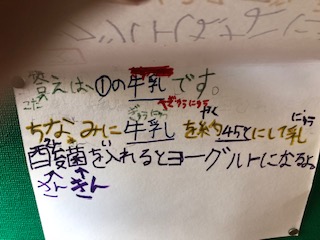 答えは、①の牛乳です。
こた
ぎゅうにゅう
ぎゅうにゅう
やく
にゅう
ちなみに牛乳を約45℃にして乳
酸菌を入れるとヨーグルトになるよ
さん
きん